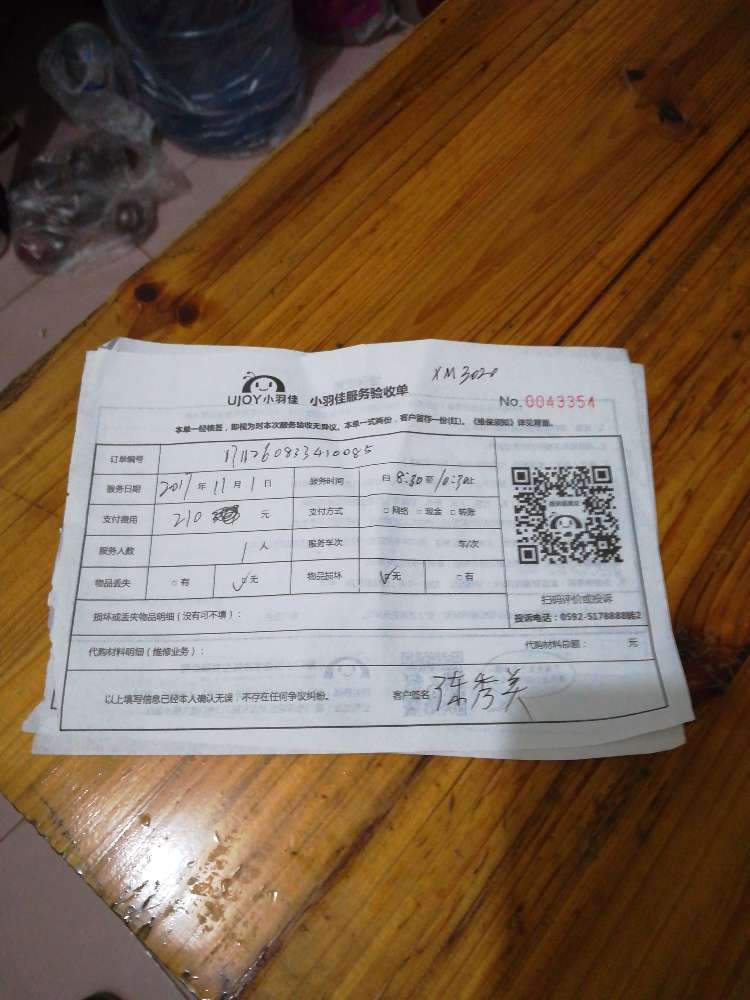 XM3020
UJOY小羽佳 小羽佳服务验收单 No.0043354
本单一经核签，即视为对本次服务验收无异议。本单一式两份，客户留存一份(红)。《维保须知》详见背面。
订单编号 1711260833410085
服务日期 2017年11月1日 服务时间 自8:30至10:30止
支付费用 210 元 支付方式 □网络 □现金 □转账
服务人数 1人 服务车次 车/次
物品丢失 □有 ☑无 物品损坏 ☑无 □有
扫码评价或投诉
损坏或丢失物品明细（没有可不填）： 投诉电话：0592-5178888转2
代购材料明细（维修业务）： 代购材料总额： 元
以上填写信息已经本人确认无误，不存在任何争议纠纷。 客户签名 陈秀美